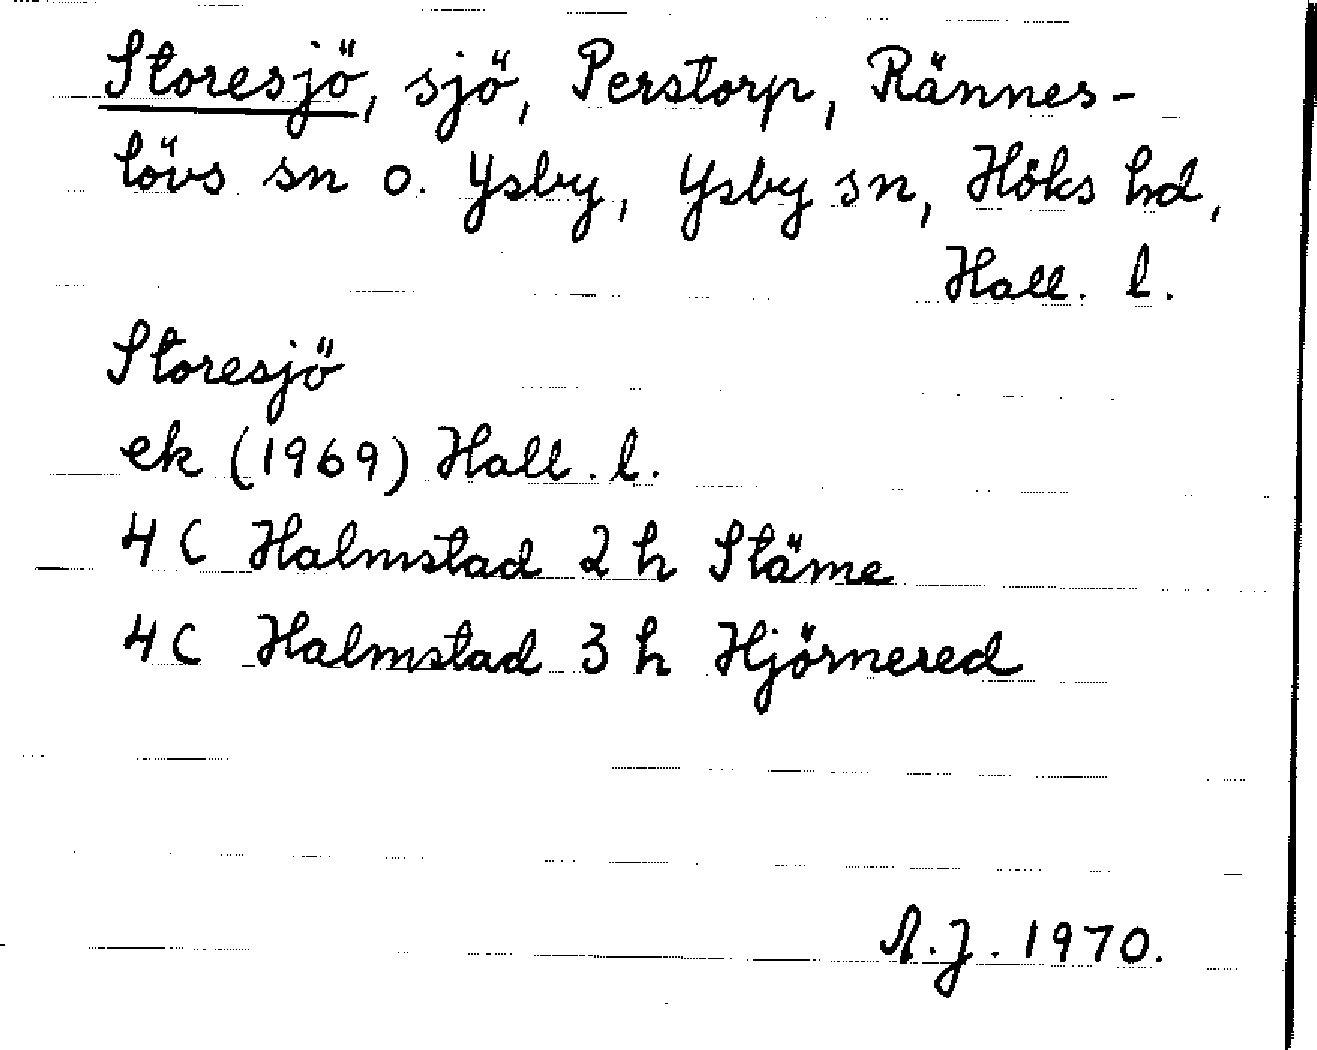 Storesjö, sjö, Perstorp, Rännes-
lövs sn o. Ysby, Ysby sn, Höks hd,
Hall. l.
Storesjö
ek (1969) Hall. l.
4 C Halmstad 2 h Stäme
4 C Halmstad 3 h Hjörnered
A.J. 1970.